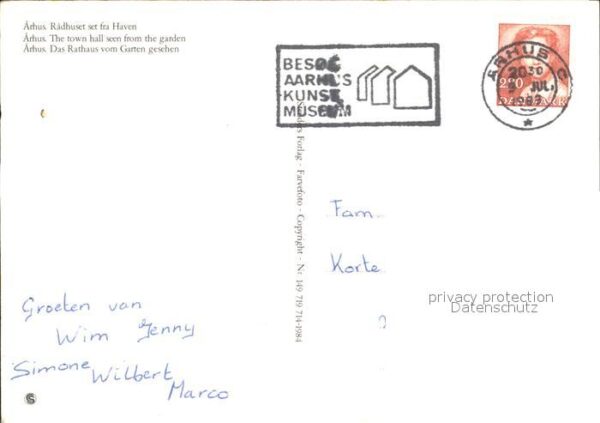 Århus. Rådhuset set fra Haven
Århus. The town hall seen from the garden
Århus. Das Rathaus vom Garten gesehen
BESØG
AARHUS
KUNST
MUSEUM
ARHUS C
20
JUL.
DANMARK
Forlag - Farvefoto - Copyright - Nr. 149 719 714-1984
Fam.
Korte
privacy protection
Datenschutz
Groeten van
Wim Jenny
Simone Wilbert
Marco